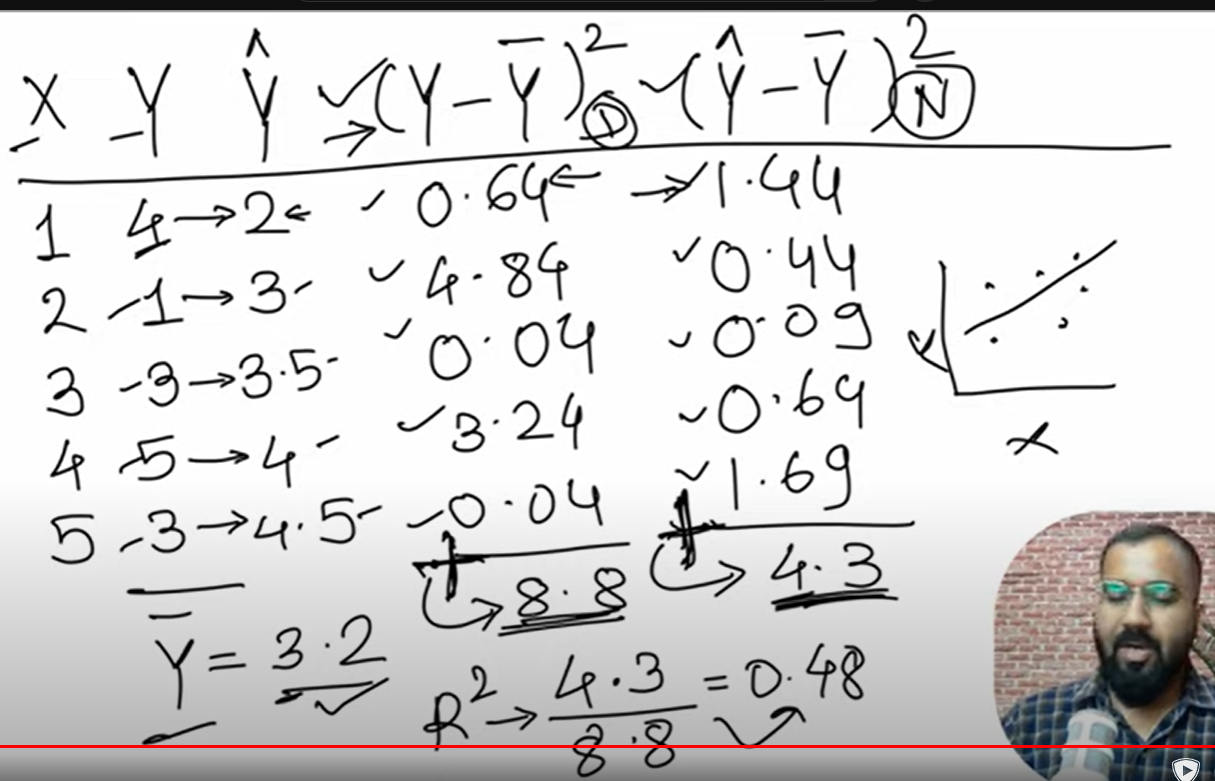 X Y Ŷ (Y - Ȳ)² D (Ŷ - Ȳ)² N
1 4 → 2 0.64 ← → 1.44
2 -1 → 3 4.84 0.44
3 -3 → 3.5 0.04 0.09
4 -5 → 4 3.24 0.64
5 -3 → 4.5 0.04 1.69
+ 8.8 + 4.3
Ȳ = 3.2
R² → 4.3 / 8.8 = 0.48
Y
X